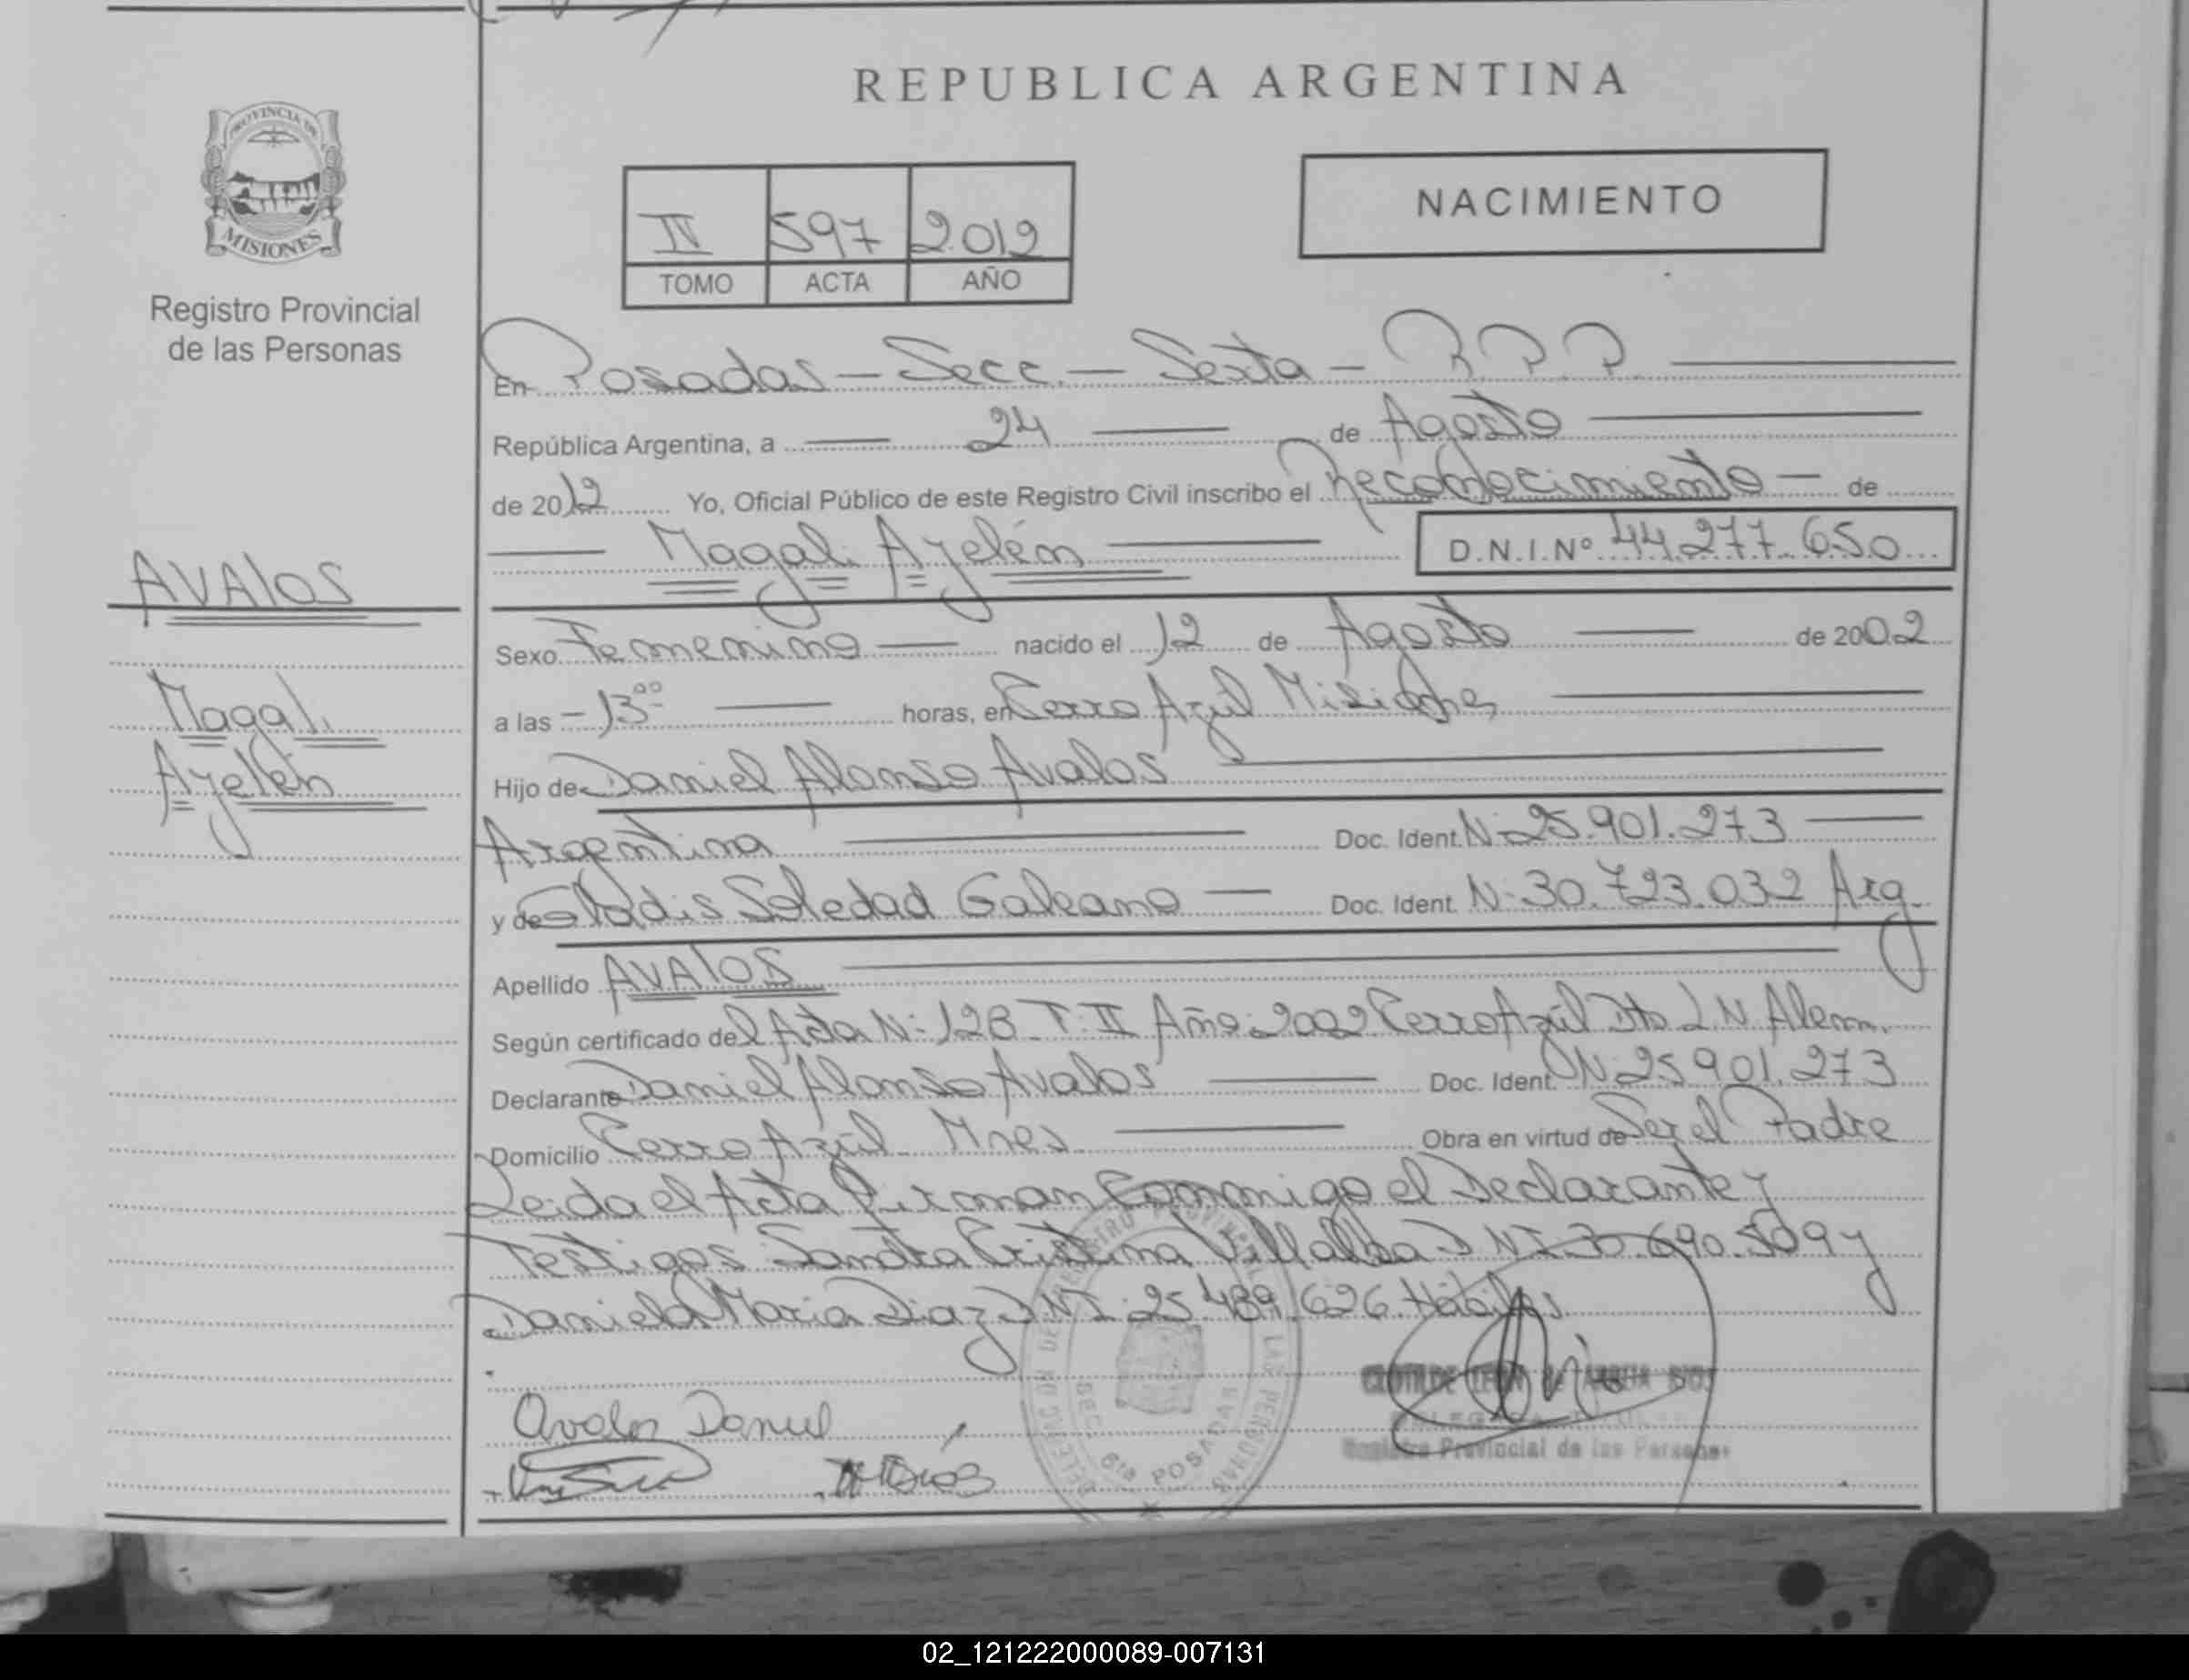 REPUBLICA ARGENTINA
PROVINCIA DE
MISIONES
Registro Provincial
de las Personas
NACIMIENTO
IV 597 2012
TOMO ACTA AÑO
En Posadas - Secc. - Sexta - R.P.P.
República Argentina, a 24 de Agosto
de 2012 Yo, Oficial Público de este Registro Civil inscribo el Reconocimiento - de
Magali Ayelén D.N.I.Nº 44.277.650
AVAlOS
Magali
Ayelén
Sexo Femenino nacido el 12 de Agosto de 2002
a las - 13:00 horas, en Cerro Azul Misiones
Hijo de Daniel Alonso Avalos
Argentina Doc. Ident. N: 25.901.273
y de Gladis Soledad Galeano Doc. Ident. N: 30.723.032 Arg.
Apellido AVAlOS
Según certificado del Acta N: 128 T: II Año: 2002 Cerro Azúl Dto L.N. Alem.
Declarante Daniel Alonso Avalos Doc. Ident. N: 25.901.273
Domicilio Cerro Azúl Mnes Obra en virtud de Ser el Padre
Leida el Acta Firman Conmigo el Declarante y
Testigos Sandra Cristina Villalba DNI 30.690.509 y
Daniela Maria Diaz DNI: 25.489.626. Hábiles.
Avalos Daniel
Registro Provincial de las Personas
SECC. 6ta POSADAS
02_121222000089-007131